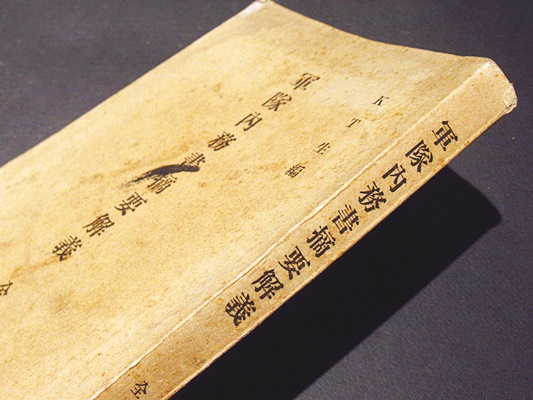 KT生編
軍隊内務書摘要解義 全
軍隊内務書摘要解義 全